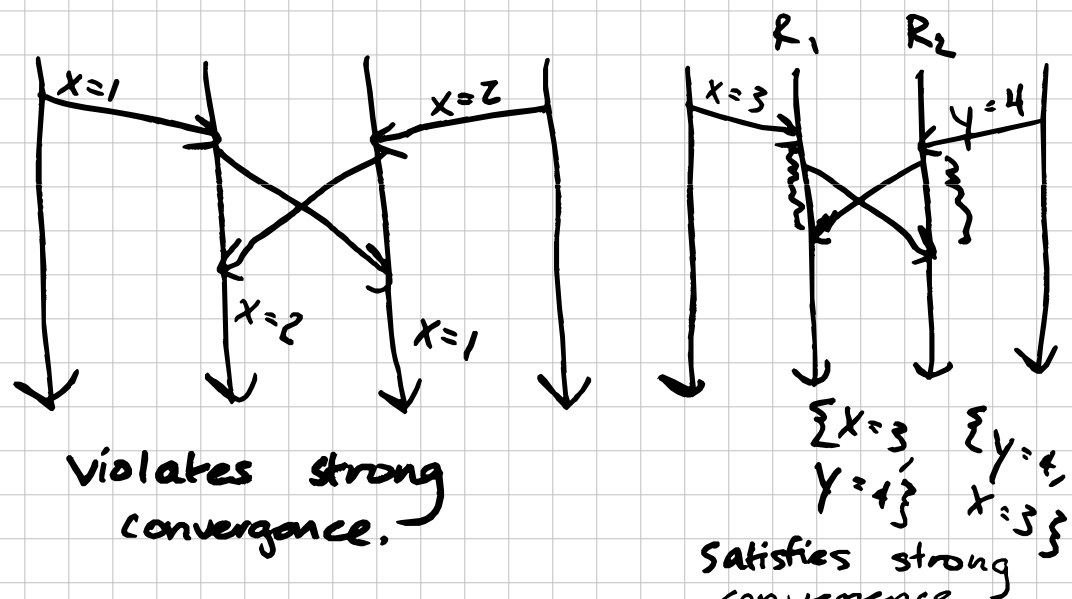 x=1
x=2
x=2
x=1
violates strong
convergence.
R1
R2
x=3
y=4
{x=3,
y=4}
{y=4,
x=3}
Satisfies strong
convergence